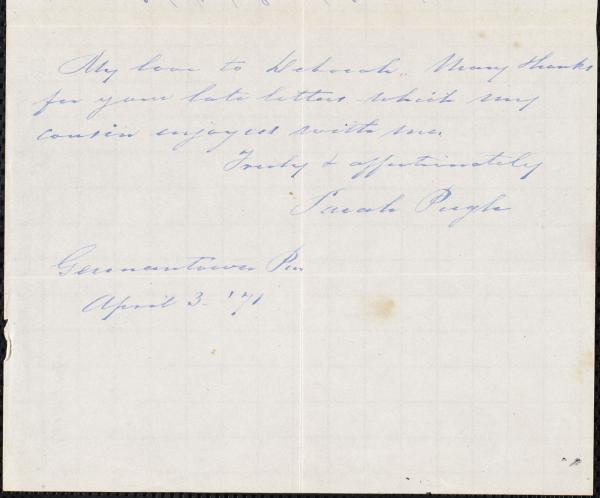 My love to Deborah. Many thanks
for your late letters which my
cousin enjoyed with me.
Truly & affectionately
Sarah Pugh
Germantown Pa
April 3. '71